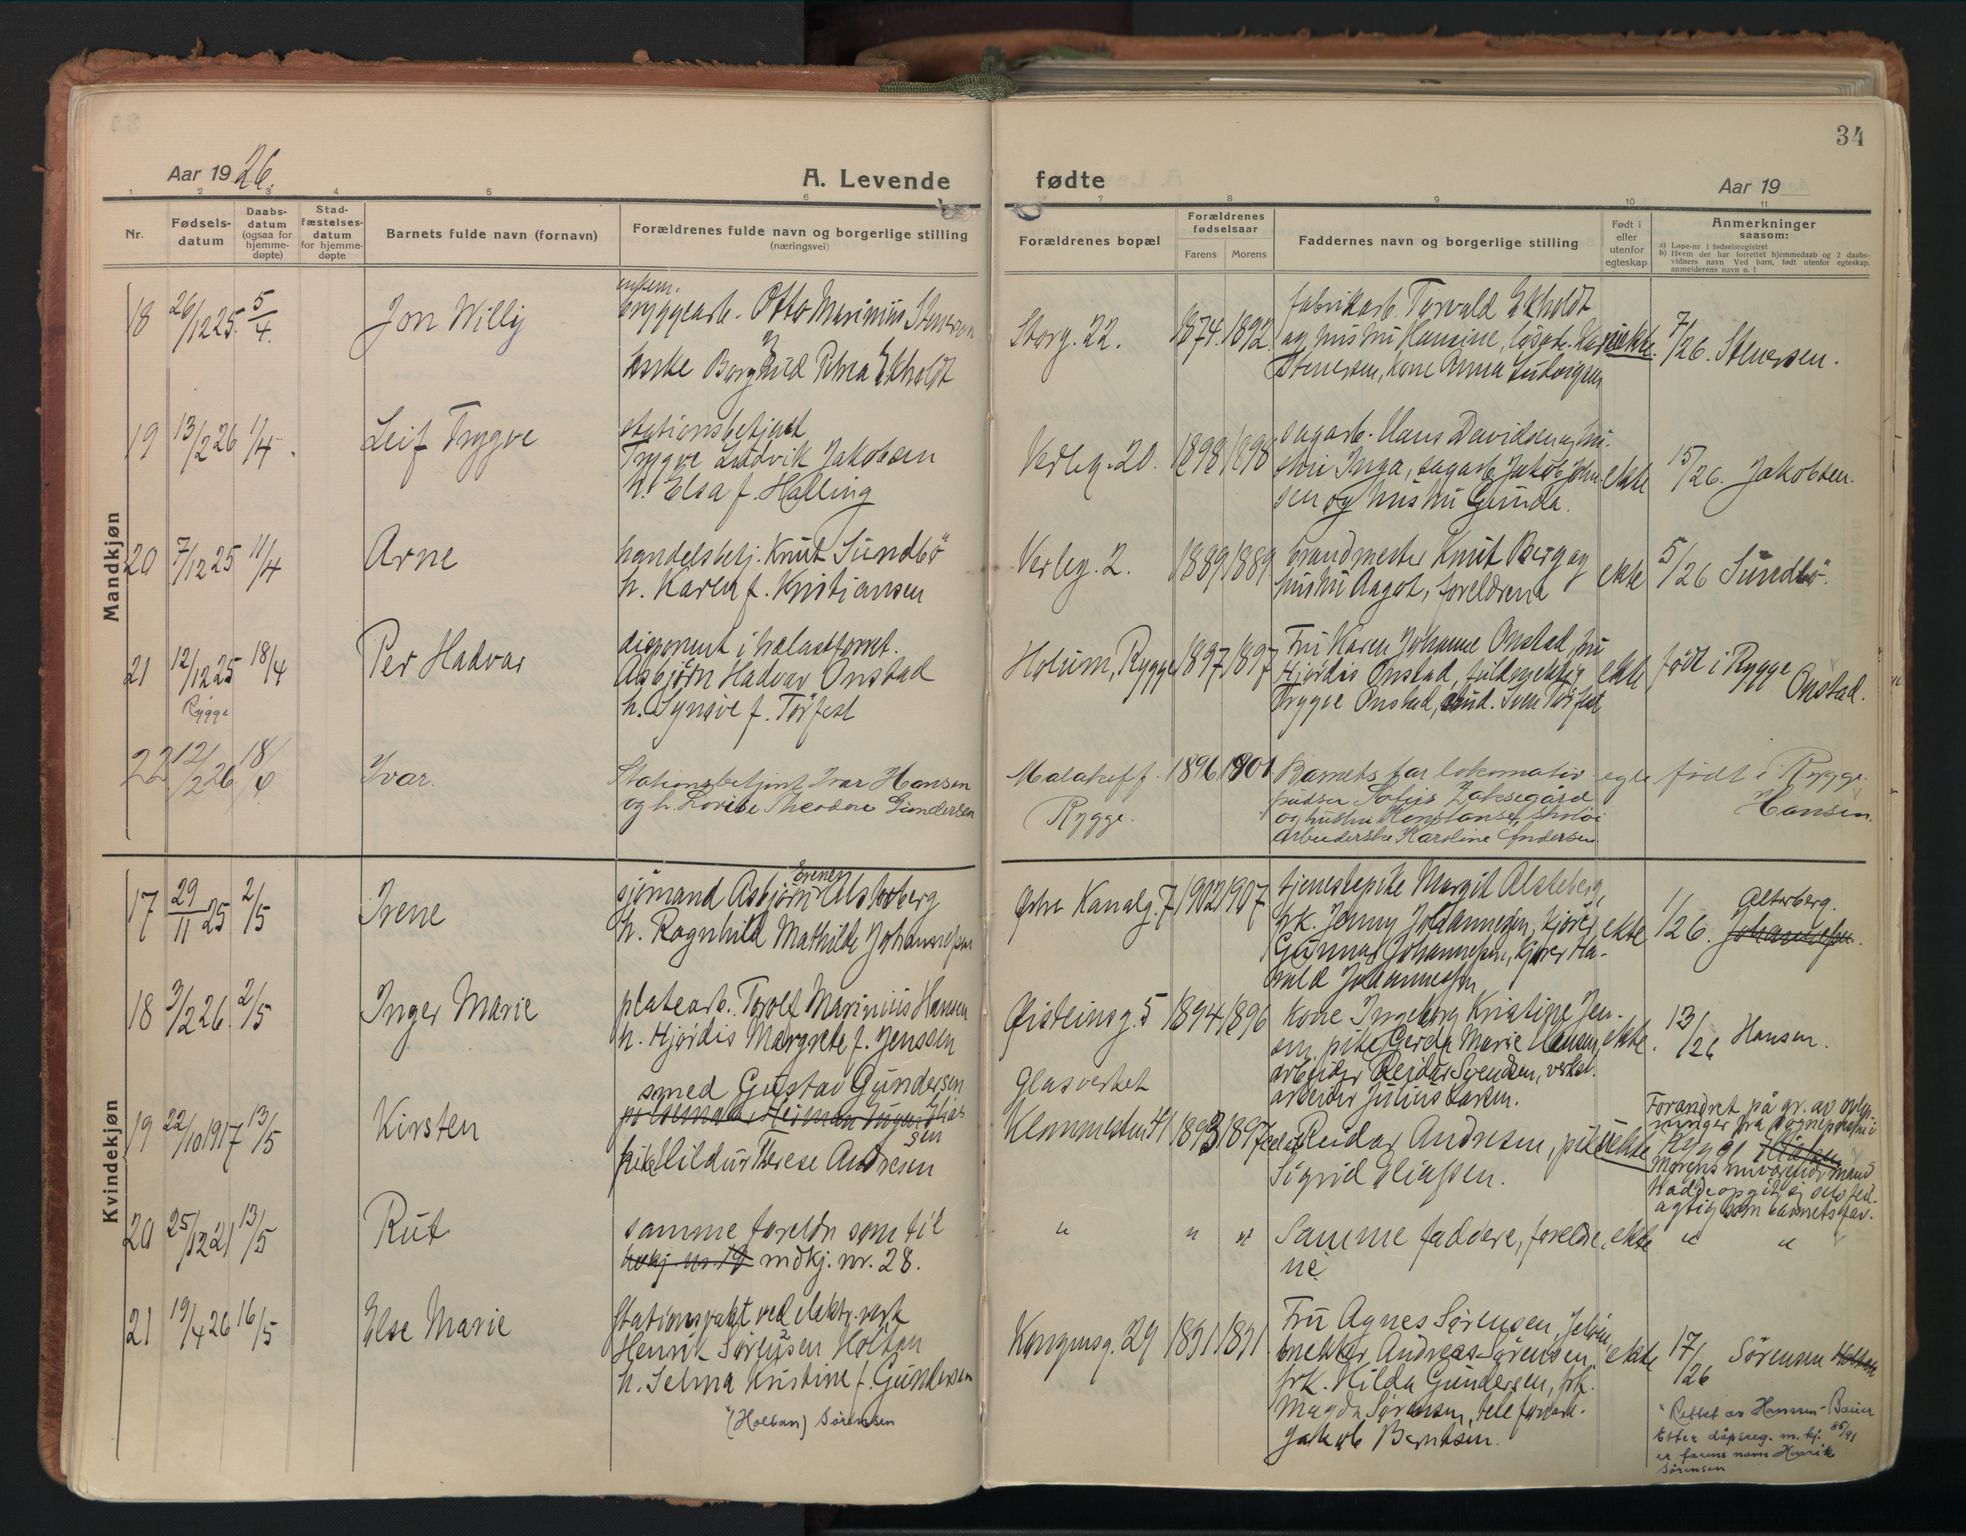 34
Aar 1926.
A. Levende
fødte
Aar 19
1 2 3 4 5 6 7 8 9 10 11
Nr.
Fødselsdatum
Daabsdatum (ogsaa for hjemmedøpte)
Stadfæstelsesdatum for hjemmedøpte
Barnets fulde navn (fornavn)
Forældrenes fulde navn og borgerlige stilling
(næringsvei)
Forældrenes bopæl
Forældrenes fødselsaar
Farens
Morens
Faddernes navn og borgerlige stilling
Født i eller utenfor egteskap
Anmerkninger
saasom:
a) Løpe-nr. i fødselsregistret
b) Hvem der har forrettet hjemmedaab og 2 daabsvidners navn Ved barn, født utenfor egteskap, anmelderens navn o. l
Mandkjøn
18 26/12 25. 5/4. Jon Willy
bryggearb. Otto Marinius Stenersen
Borghild Petra Ekholdt
Storg. 22. 1874. 1892.
fabrikarb. Torvald Ekholdt
og hustru Hansine, løsarb.
Stenersen, kone Anna Ludvigsen
uekte. 7/26. Stenersen.
19 13/2 26 1/4. Leif Trygve
stationsbetjent
Trygve Ludvik Jakobsen
h. Elsa f. Halling
Verleg. 20. 1898 1898
sagarb. Hans Davidsen og hu-
stru Inga, sagarb. Jakob John-
sen og hustru Gunda.
ekte 15/26. Jakobsen.
20 7/12 25 11/4 Arne
handelsbetj. Knut Sundbö
h. Karen f. Kristiansen
Verleg. 2. 1889 1889
brandmester Knut Berg og
hustru Aagot, foreldrene
ekte 5/26 Sundbö.
21 12/12 25 18/4 Per Hadvar
Rygge
disponent i trælastforret.
Asbjørn Hadvar Onstad
h. Synøve f. Torfest
Holum, Rygge 1897 1897
Fru Karen Johanne Onstad, fru
Hjørdis Onstad, fuldmektig
Trygve Onstad, stud. Sven Torfest
ekte født i Rygge
Onstad.
22 12/2 26 18/4 Ivar.
Stationsbetjent Ivar Hansen
og h. Lovise Theodora Gundersen
Malakoff. 1896 1901
Rygge.
Barnets far lokomotiv
pudser Sofus Laksegård
og hustru Konstanse, skotøi
arbeiderske Karoline Andersen
egte født i Rygge
Hansen.
Kvindekjøn
17 29/11 25 2/5 Irene
sjømand Asbjørn Alsterberg
h. Ragnhild Mathilde Johannessen
Østre Kanalg. 7 1902 1907
tjenestepike Margit Alsteberg,
frk. Jenny Johannessen, kjører
Gunnar Johannessen, kjører Ha-
rald Johannessen
ekte 1/26. Alterberg.
Johannessen.
18 3/2 26. 2/5 Inger Marie
platearb. Torolf Marinius Hansen
h. Hjørdis Margrete f. Jenssen
Øisteinsg. 5 1894 1896
Kone Ingeborg Kristine Jen-
sen, pike Gerda Marie Hansen,
arbeider Reidar Svendsen, verks-
arbeider Julius Larsen.
ekte. 13/26 Hansen.
19 22/10 1917 13/5 Kirsten
smed Gustav Gundersen
pike Hildur Therese Andresen
Glasverket
Klommesten 41 1893 1897
Reidar Andresen, pike
Sigrid Eliassen.
uekte
Forandret på gr. av oplys-
ninger fra sognepresten i
Rygge
Morens nuværende mand
hadde opgit sig selv feil-
agtig som barnets far.
20 25/12 21 13/5 Rut
samme foreldre som til
kvkj. nr. 19 mdkj. nr. 28.
" " "
Samme faddere, foreldre-
ne
ekte " "
21 19/4 26 16/5 Else Marie
Stationsvakt ved elektr. verk
Henrik Sørensen Holtan
h. Selma Kristine f. Gundersen
"(Holtan) Sørensen
Kongensg. 29 1891 1891.
Fru Agnes Sørensen, Jeløen
snekker Andreas Sørensen,
frk. Hilda Gundersen, frk.
Magda Sørensen, telefonarb.
Jakob Berntsen.
ekte 17/26 Sørensen Holtan
" Rettet av Hanssen-Bauer
Etter dåpsreg. m. kj. 86/91
er farens navn Henrik
Sørensen